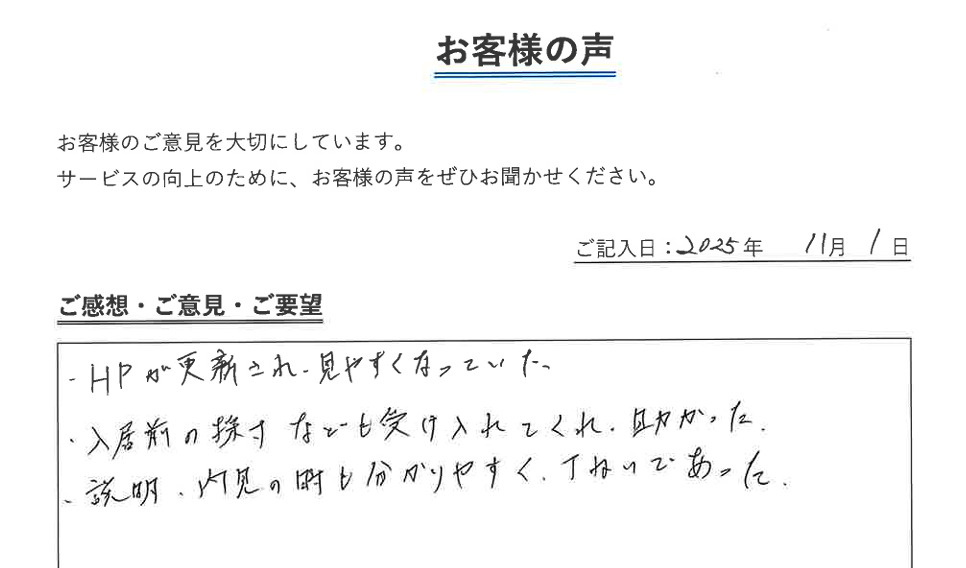 お客様の声
お客様のご意見を大切にしています。
サービスの向上のために、お客様の声をぜひお聞かせください。
ご記入日：2025年 11月 1日
ご感想・ご意見・ご要望
・HPが更新され、見やすくなっていた。
・入居前の採寸なども受け入れてくれ、助かった。
・説明、内見の時も分かりやすく、丁ねいであった。